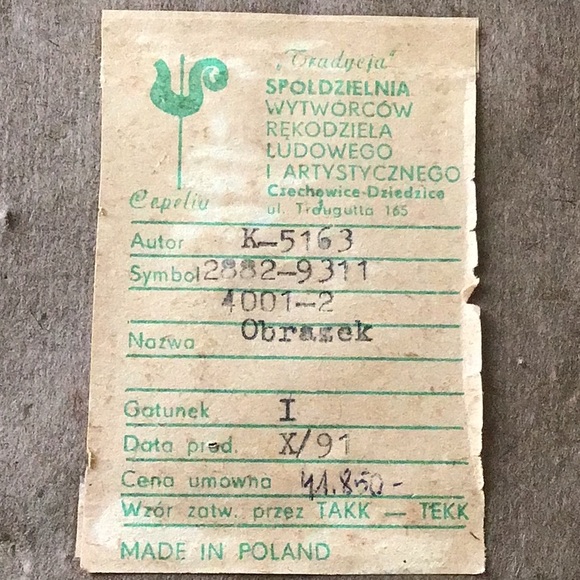 „Tradycja"
SPÓŁDZIELNIA
WYTWÓRCÓW
RĘKODZIEŁA
LUDOWEGO
I ARTYSTYCZNEGO
Czechowice-Dziedzice
ul. Traugutta 165
Cepelia
Autor K-5163
Symbol 2882-9311
4001-2
Nazwa Obrazek
Gatunek I
Data prod. X/91
Cena umowna 41.850-
Wzór zatw. przez TAKK — TEKK
MADE IN POLAND